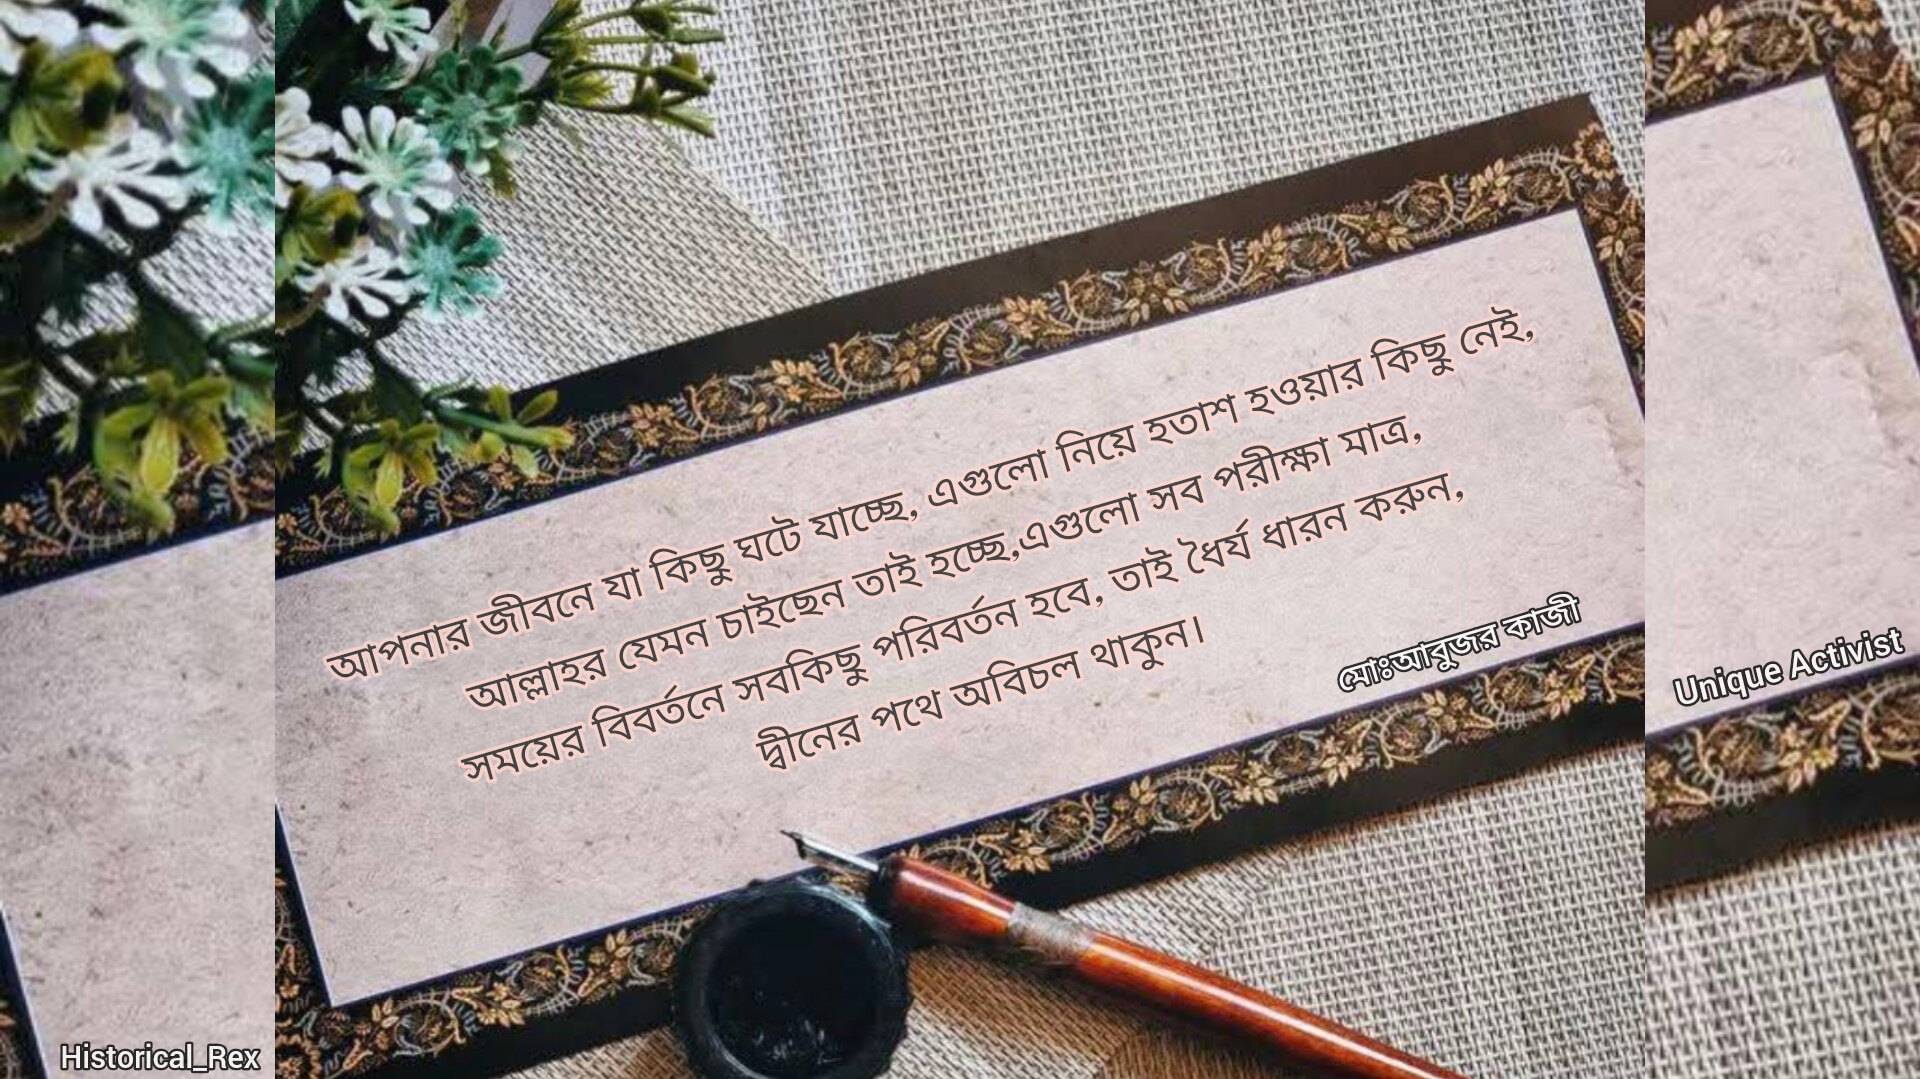 আপনার জীবনে যা কিছু ঘটে যাচ্ছে, এগুলো নিয়ে হতাশ হওয়ার কিছু নেই,
আল্লাহর যেমন চাইছেন তাই হচ্ছে,এগুলো সব পরীক্ষা মাত্র,
সময়ের বিবর্তনে সবকিছু পরিবর্তন হবে, তাই ধৈর্য ধারন করুন,
দ্বীনের পথে অবিচল থাকুন।
মোঃআবুজর কাজী
Unique Activist
Historical_Rex